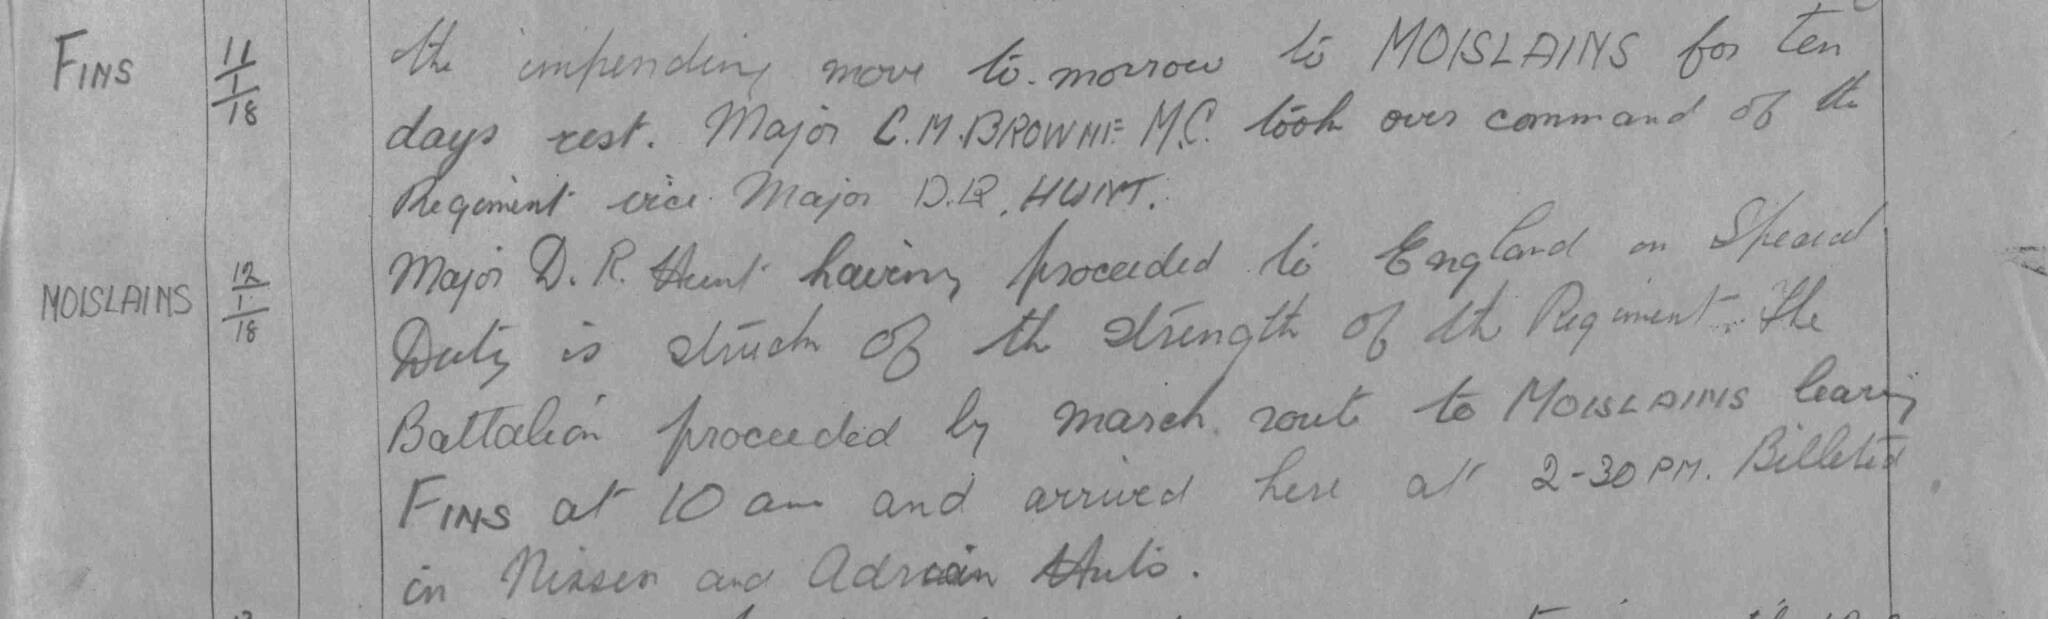 FINS 11/1/18 the impending move to-morrow to MOISLAINS for ten
days rest. Major C.M. BROWNE M.C. took over command of the
Regiment vice Major D.R. HUNT.
Major D. R. Hunt having proceeded to England on Special
MOISLAINS 12/1/18
Duty is struck of the strength of the Regiment. The
Battalion proceeded by march route to MOISLAINS leaving
FINS at 10 am and arrived here at 2-30 PM. Billeted
in Nissen and Adrian Huts.